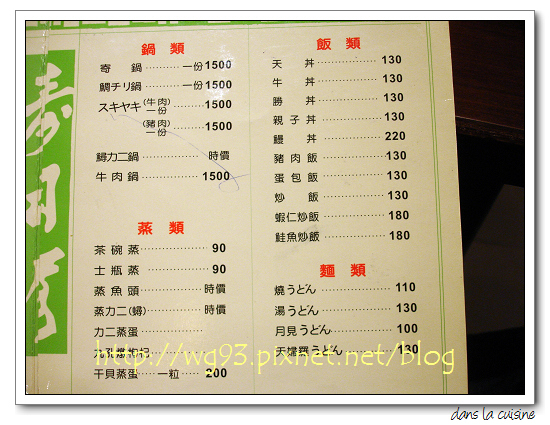 壽司秀
鍋類
寄鍋 一份 1500
鯛チリ鍋 一份 1500
スキヤキ(牛肉)一份 1500
(豬肉)一份 1500
鱘力二鍋 時價
牛肉鍋 1500
蒸類
茶碗蒸 90
士瓶蒸 90
蒸魚頭 時價
蒸力二(鱘) 時價
力二蒸蛋
干貝蒸蛋 一粒 200
飯類
天丼 130
牛丼 130
勝丼 130
親子丼 130
鰻丼 220
豬肉飯 130
蛋包飯 130
炒飯 130
蝦仁炒飯 180
鮭魚炒飯 180
麵類
燒うどん 110
湯うどん 130
月見うどん 100
天婦羅うどん 130
http://wg93.pixnet.net/blog
dans la cuisine